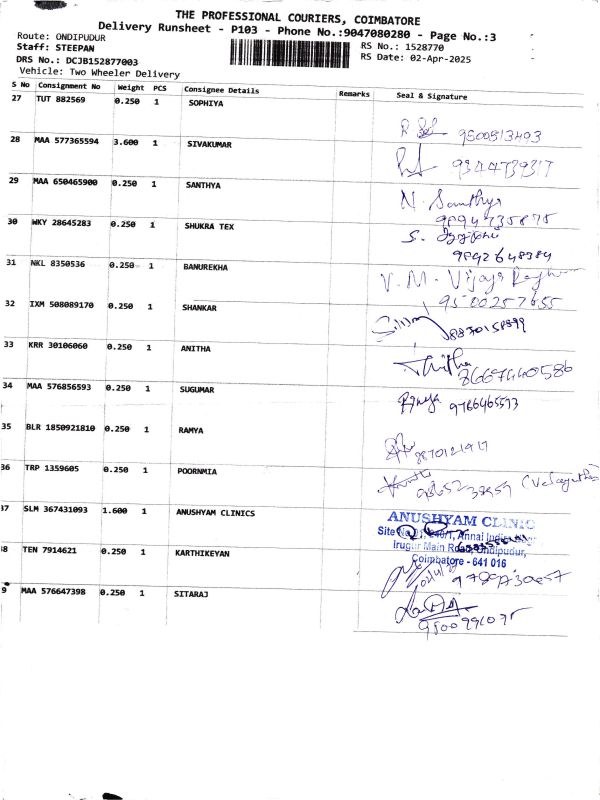 THE PROFESSIONAL COURIERS, COIMBATORE
Delivery Runsheet - P103 - Phone No.:9047080280 - Page No.:3
Route: ONDIPUDUR
RS No.: 1528770
Staff: STEEPAN
RS Date: 02-Apr-2025
DRS No.: DCJB152877003
Vehicle: Two Wheeler Delivery
S No Consignment No Weight PCS Consignee Details Remarks Seal & Signature
27 TUT 882569 0.250 1 SOPHIYA
9500813493
28 MAA 577365594 3.600 1 SIVAKUMAR
9344739317
29 MAA 650465900 0.250 1 SANTHYA
N. Santhya
9894735875
30 WKY 28645283 0.250 1 SHUKRA TEX
S.
9892648384
31 NKL 8350536 0.250 1 BANUREKHA
V. M. Vijaya
9500257655
32 IXM 508089170 0.250 1 SHANKAR
8870158899
33 KRR 30106060 0.250 1 ANITHA
8667440586
34 MAA 576856593 0.250 1 SUGUMAR
9786465573
35 BLR 1850921810 0.250 1 RAMYA
36 TRP 1359605 0.250 1 POORNMIA
37 SLM 367431093 1.600 1 ANUSHYAM CLINICS
ANUSHYAM CLINIC
Irugur Main Road, Ondipudur,
Coimbatore - 641 016
38 TEN 7914621 0.250 1 KARTHIKEYAN
9 MAA 576647398 0.250 1 SITARAJ